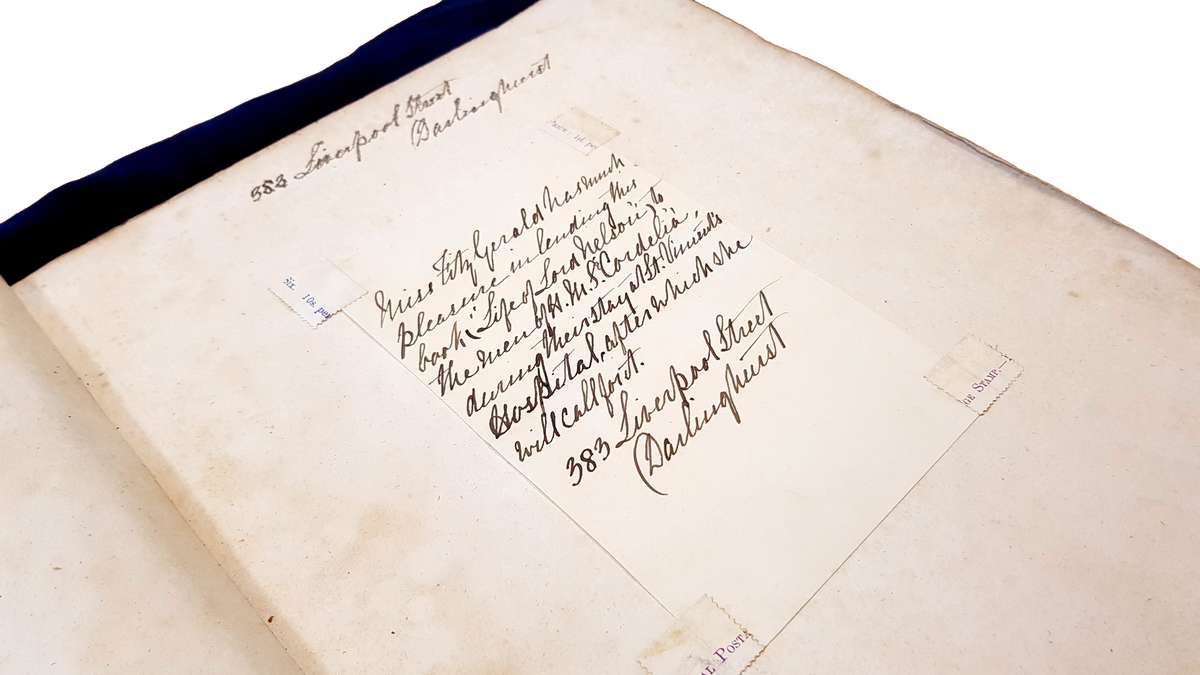 383 Liverpool Street
Darlinghurst
Miss FitzGerald has much
pleasure in lending this
book "Life of Lord Nelson" to
the men of H.M.S. "Cordelia"
during their stay at St. Vincent's
Hospital, after which she
will call for it.
383 Liverpool Street
Darlinghurst
OE STAMP.—
AL POST